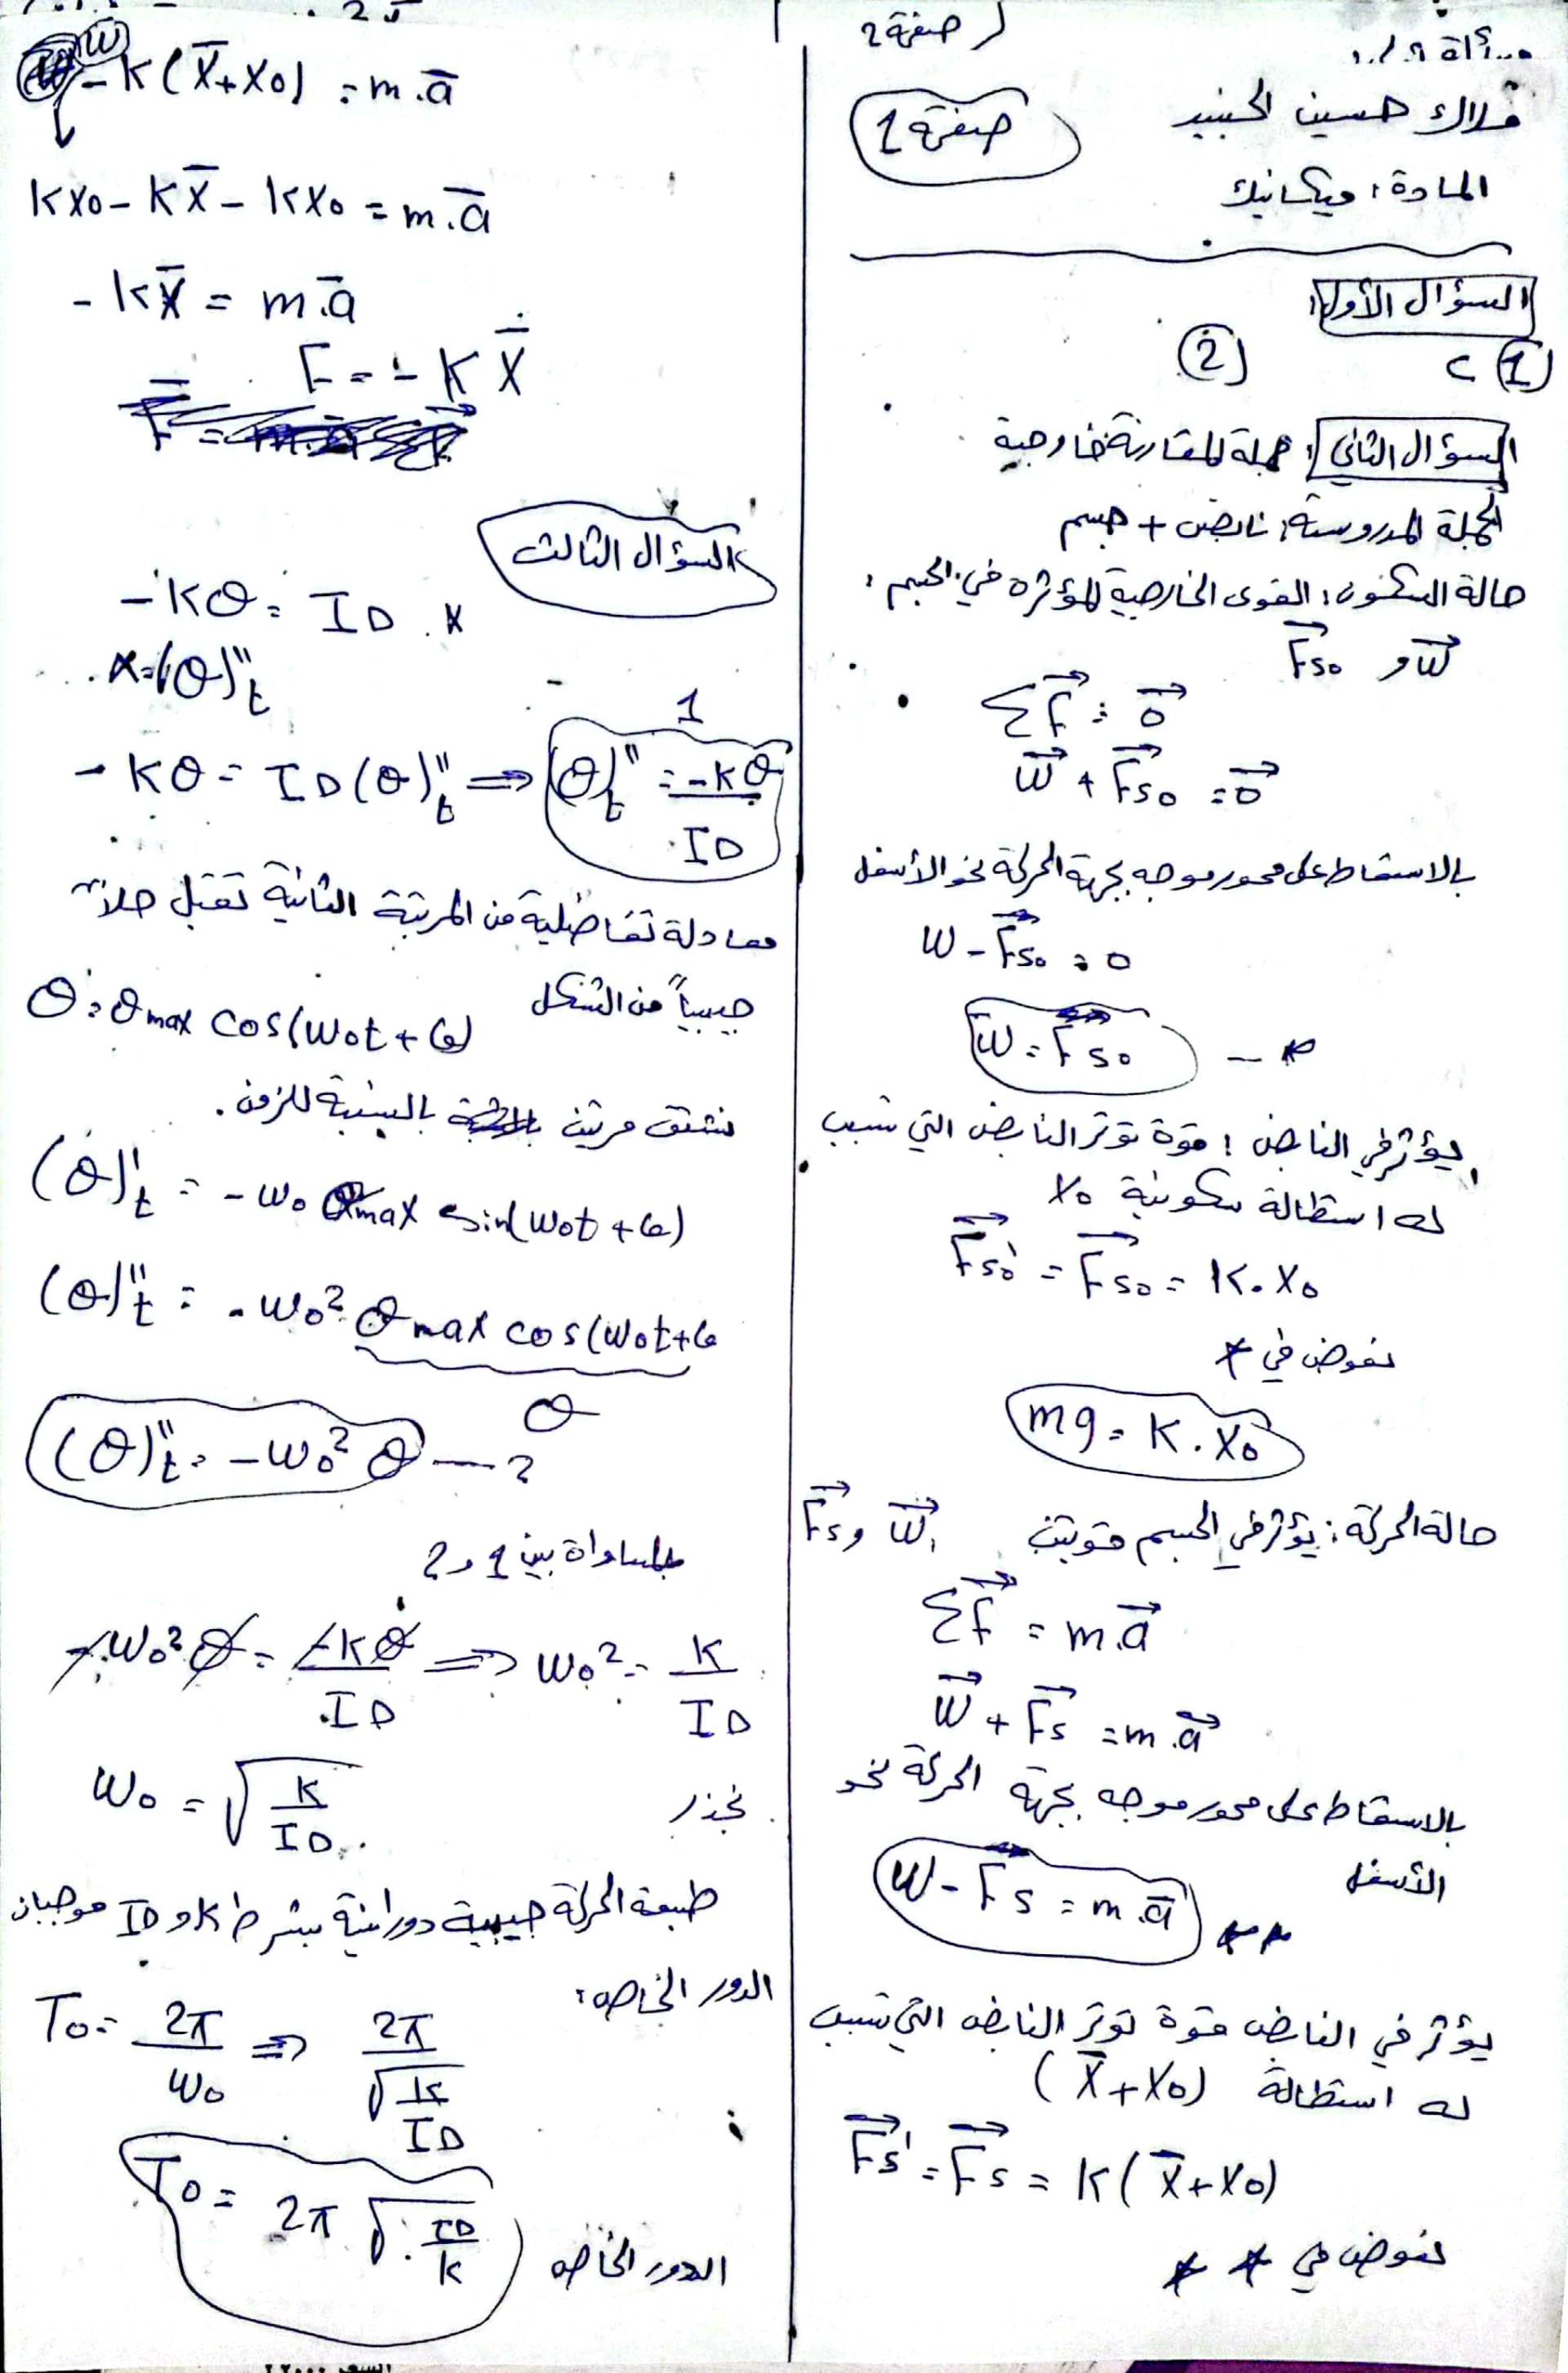 صفحة 2
ملاك حسين الجنيد
صفحة 1
المادة: ميكانيك
السؤال الأول:
1) c
2)
السؤال الثاني: جملة المقارنة خارجية
الجملة المدروسة: نابض + جسم
حالة السكون: القوى الخارجية المؤثرة في الجسم:
W⃗ و F⃗s₀
ΣF⃗ = 0⃗
W⃗ + F⃗s₀ = 0⃗
بالاسقاط على محور موجه بجهة الحركة نحو الأسفل
W - Fs₀ = 0
W = Fs₀ — *
يؤثر في النابض: قوة توتر النابض التي تسبب
له استطالة سكونية x₀
F⃗s₀' = F⃗s₀ = K.x₀
نعوض في *
mg = K.x₀
حالة الحركة: يؤثر في الجسم قوتين W⃗, و F⃗s
ΣF⃗ = m.a⃗
W⃗ + F⃗s = m.a⃗
بالاسقاط على محور موجه بجهة الحركة نحو
الأسفل
W - Fs = m.a̅ **
يؤثر في النابض قوة توتر النابض التي تسبب
له استطالة (x̅+x₀)
F⃗s' = F⃗s = K(x̅+x₀)
نعوض في **
W - K(x̅+x₀) = m.a̅
Kx₀ - Kx̅ - Kx₀ = m.a̅
-Kx̅ = m.a̅
F = -Kx̅
السؤال الثالث
-Kθ = I∆.α
α = (θ)''t
-Kθ = I∆(θ)''t ⇒ (θ)''t = -Kθ/I∆ 1
معادلة تفاضلية من المرتبة الثانية تقبل حلاً
جيبياً من الشكل
θ = θmax cos(ω₀t + φ)
نشتق مرتين بالنسبة للزمن.
(θ)'t = -ω₀ θmax sin(ω₀t + φ)
(θ)''t = -ω₀² θmax cos(ω₀t+φ
θ
(θ)''t = -ω₀² θ — 2
بالمساواة بين 1 و 2
-ω₀² θ = -Kθ/I∆ ⇒ ω₀² = K/I∆
نجذر
ω₀ = √(K/I∆)
طبيعة الحركة جيبية دورانية بشرط K و I∆ موجبان
الدور الخاص:
T₀ = 2π/ω₀ ⇒ 2π/√(K/I∆)
T₀ = 2π √(I∆/K) الدور الخاص